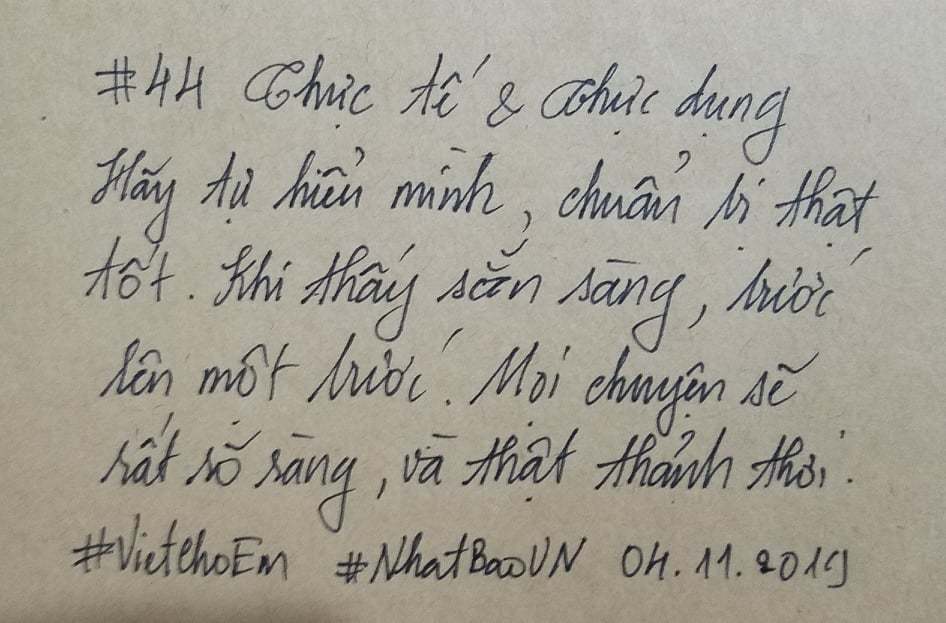 #44 Thực tế & Thực dụng
Hãy tự hiểu mình, chuẩn bị thật
tốt. Khi thấy sẵn sàng, bước
lên một bước. Mọi chuyện sẽ
rất rõ ràng, và thật thảnh thơi.
#VietchoEm #NhatBaoVN 04.11.2019